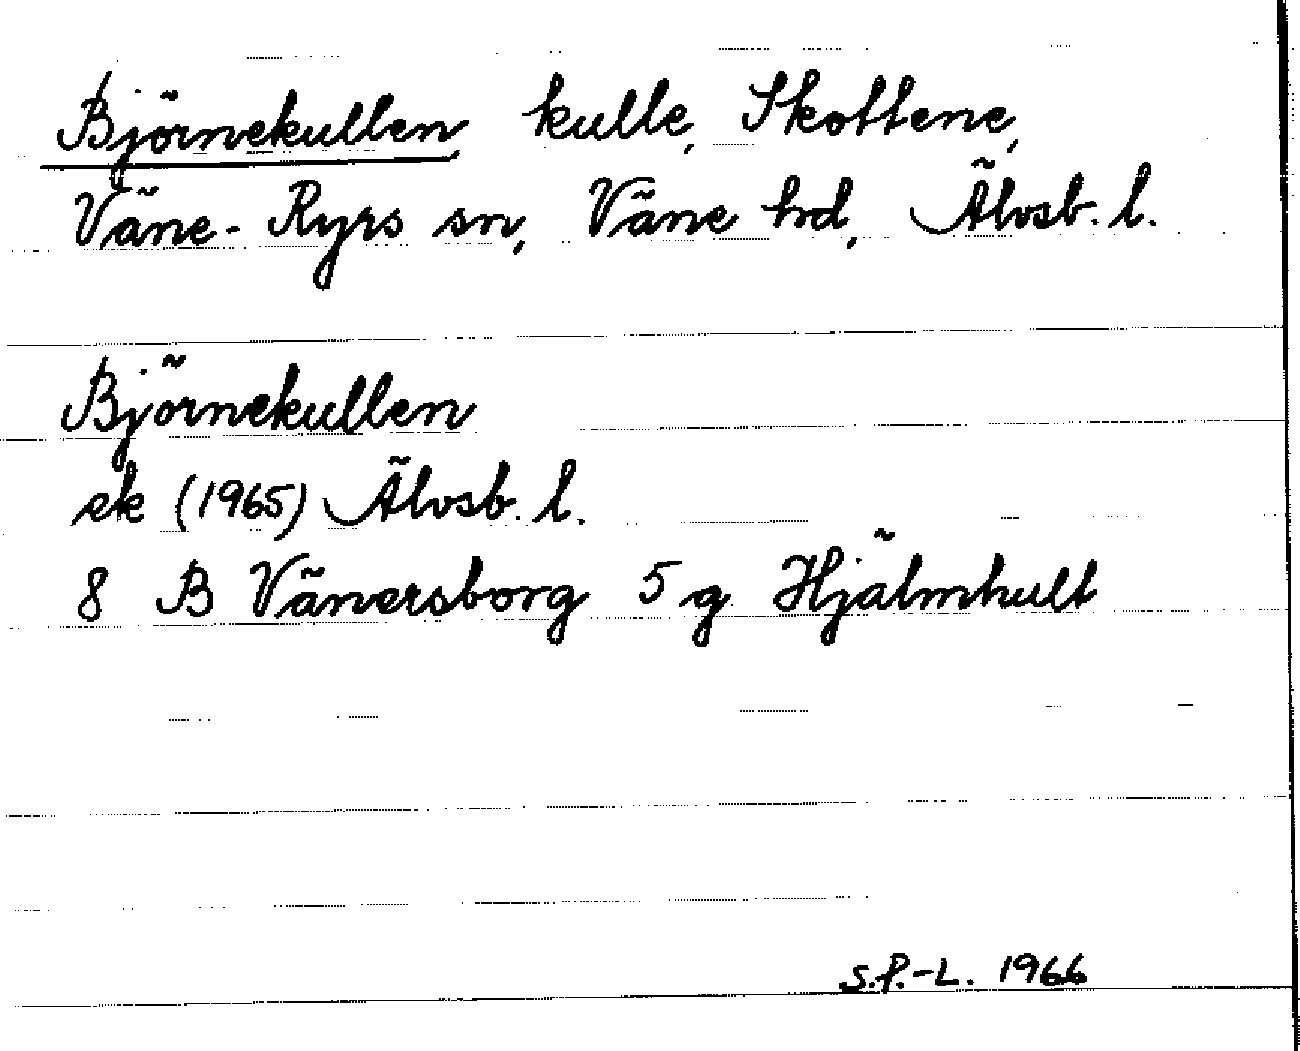 Björnekullen, kulle, Skottene,
Väne-Ryrs sn, Väne hd, Älvsb. l.
Björnekullen
ek (1965) Älvsb. l.
8 B Vänersborg 5 g Hjälmhult
S.P.-L. 1966